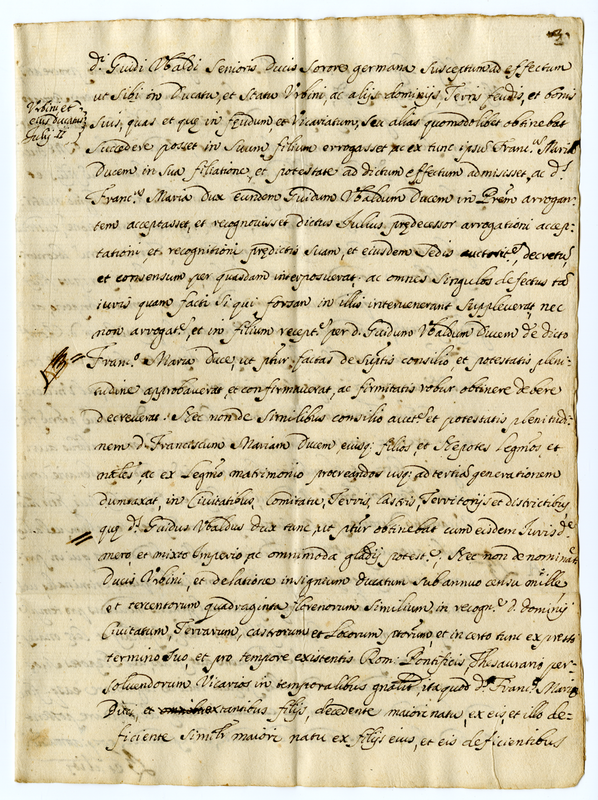 d. Guidi Vbaldi Senioris Ducis Sorore germana Susceptum ad effectum
ut Sibi in Ducatu, et Statu Vrbini, ac alijs dominijs, Terris feudis, et bonis
Vrbini et
eius ducatus
Julij II
Suis, quas et que in feudum, et Vicariatum, seu alias quomodolibet obtinebat
Succedere posset in Suum filium arrogasset ac ex tunc ipsum Franc. Mariam
Ducem in Sua filiatione, et potestate ad dictum effectum admisset, ac d.
Franc. Maria Dux eundem Guidum Vbaldum Ducem in Prem arrogan-
tem acceptasset, et recognouisset dictus Julius predecessor arrogationi accep-
tationi et recognitioni predictis Suam, et eiusdem Sedis auctorit. decretu
et consensum per quasdam interposuerat ac omnes Singulos defectus ta
iuris quam facti Si qui forsan in illis interuenerant Suppleuerat, nec
non arrogat. et in filium recept. per d. Guidum Vbaldum Ducem de dicto
Franc. Maria Duce, ut ptur factas de Suptis consilio et potestatis pleni-
tudine approbauerat et confirmauerat, ac firmitatis robur obtinere debere
decreuerat. Nec non de Similibus consilio auct. et potestatis plenitudi-
nem d. Franciscum Mariam Ducem eiusq. filios, et Nepotes Legmos, et
nales ac ex Legmo matrimonio procreandos usq. ad tertia generationem
dumtaxat, in Ciuitatibus, Comitatu, Terris, Castris, Territorijs et districtibus
que d. Guidus Vbaldus Dux tunc ut ptur obtinebat cum eisdem Jurisd.
mero, et mixto Imperio ac omnimoda gladij potest. Nec non denominat.
Ducis Vrbini, et delatione insignium ducatum Sub annuo censu mille
et tercentorum quadraginta florenorum Similium, in recogn. d. dominij
Ciuitatum, Terrarum, castrorum et Locorum ptorum et in certo tunc expressi
termino Suo et pro tempore existentis Rom. Pontificis Thesaurario per-
soluendorum Vicarios in temporalibus gnalit. ita quod d. Franc. Maria
Duci, et extantibus filijs, decedente maiori natu, ex eis et illo de-
ficiente Similr maiori natu ex filijs eius, et eis deficientibus